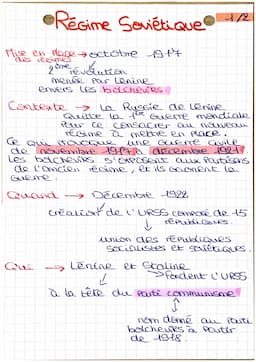 Régime Soviétique
-1/2
Mise en place → octobre 1917
des régimes
2ème révolution
menée par Lénine
envers les bolcheviks
Contexte → La Russie de Lénine
quitte la 1ère Guerre mondiale
pour ce consacrer au nouveau
régime à mettre en place.
Ce qui provoque une guerre civile
de novembre 1917 à décembre 1921
les bolcheviks s'opposent aux Partisans
de l'ancien régime, et ils gagnent la
guerre.
Quand → Décembre 1922
création de l'URSS composé de 15
républiques.
union des républiques
socialistes et soviétiques.
Qui → Lénine et Staline
fondent l'URSS
à la tête du parti communisme
nom donné au parti
bolcheviks à partir
de 1918.